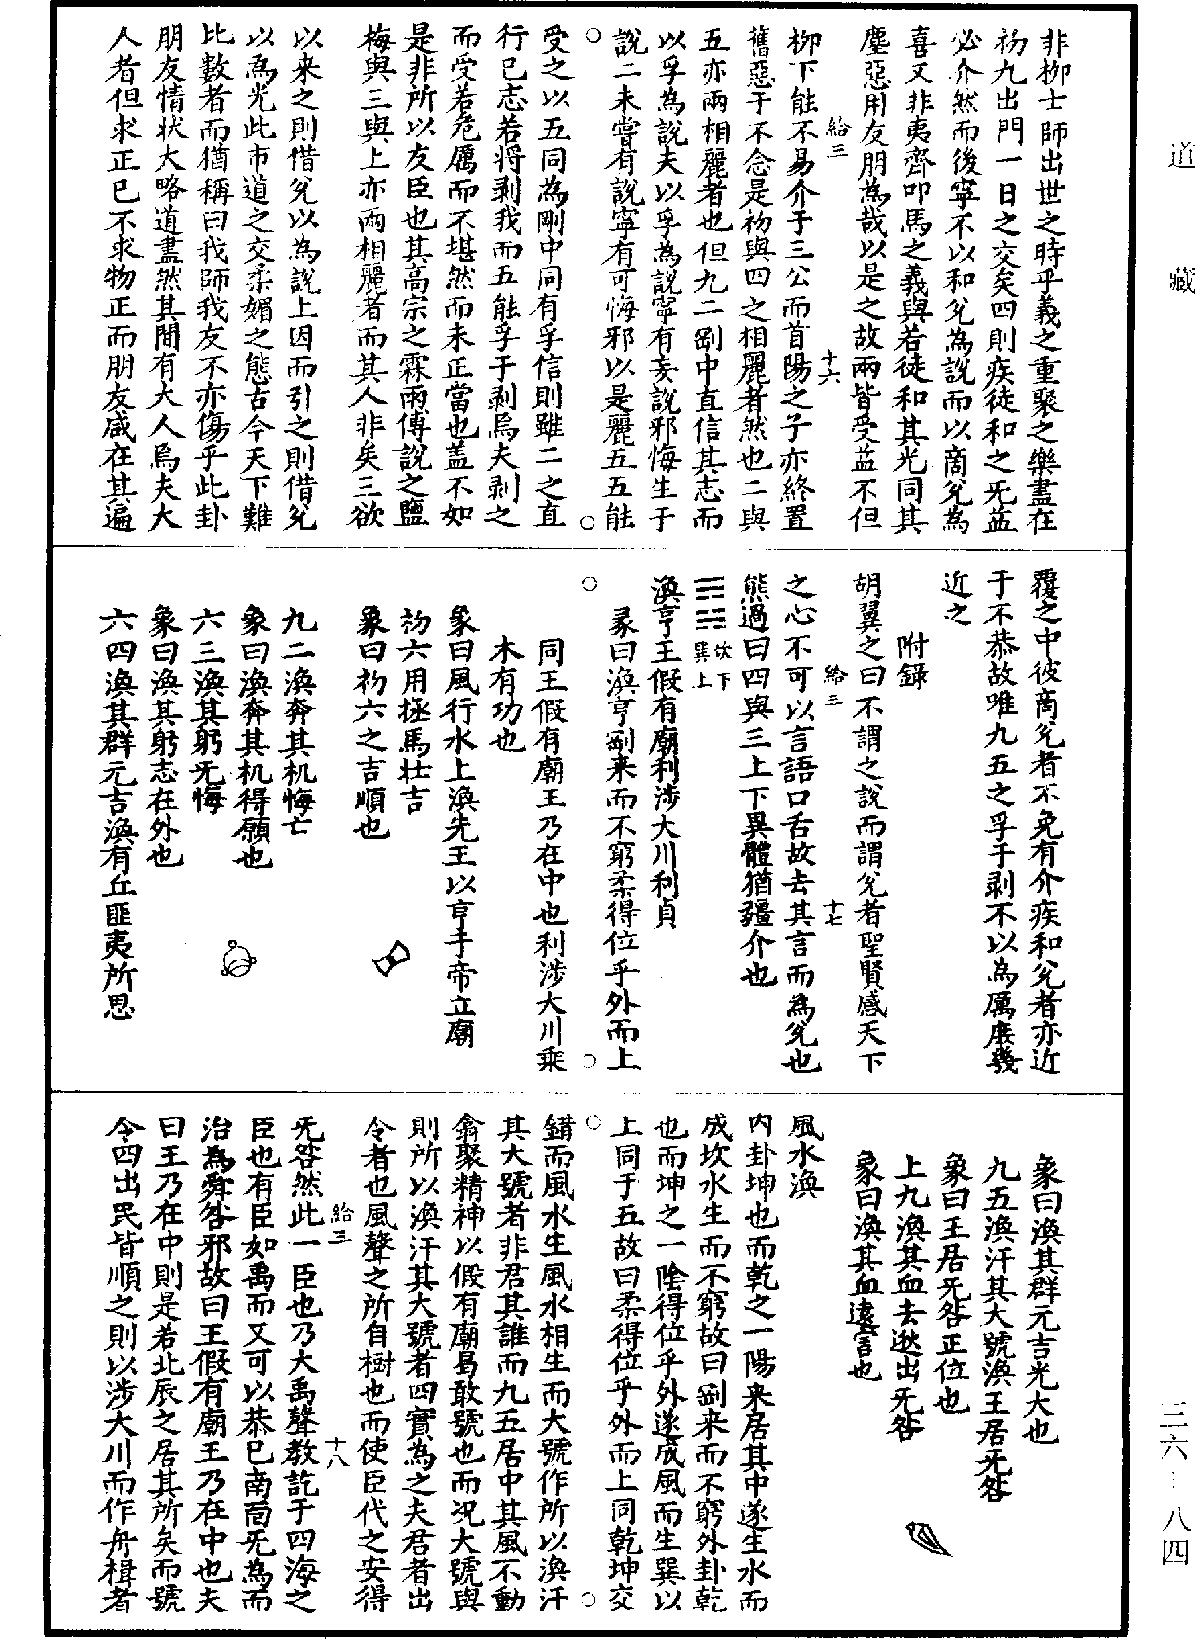 道藏
非柳士師出世之時乎義之重聚之樂盡在
初九出門一日之交矣四則疾徒和之旡益
必介然而後寧不以和兊為說而以商兊為
喜又非夷齊叩馬之義與若徒和其光同其
塵惡用友朋為哉以是之故兩皆受益不但
給三 十六
柳下能不易介于三公而首陽之子亦終置
舊惡于不念是初與四之相麗者然也二與
五亦兩相麗者也但九二剛中直信其志而
以孚為說夫以孚為說寧有妄說邪悔生于
說二未嘗有說寧有可悔邪以是麗五五能
受之以五同為剛中同有孚信則雖二之直
行已志若將剥我而五能孚于剥烏夫剥之
而受若危厲而不堪然而未正當也盖不如
是非所以友臣也其高宗之霖雨傅說之鹽
梅與三與上亦兩相麗者而其人非矣三欲
以来之則借兊以為說上因而引之則借兊
以為光此市道之交柔媚之態古今天下難
比數者而猶稱曰我師我友不亦傷乎此卦
朋友情狀大略道盡然其間有大人烏夫大
人者但求正已不求物正而朋友咸在其遍
覆之中彼商兊者不免有介疾和兊者亦近
于不恭故唯九五之孚于剥不以為厲庶幾
近之
附録
胡翼之曰不謂之說而謂兊者聖賢感天下
給三 十七
之心不可以言語口舌故去其言而為兊也
熊過曰四與三上下異體猶疆介也
䷺ 坎下巽上
渙亨王假有廟利涉大川利貞
彖曰渙亨剛来而不窮柔得位乎外而上
同王假有廟王乃在中也利涉大川乘
木有功也
象曰風行水上渙先王以亨于帝立廟
初六用拯馬壯吉
象曰初六之吉順也
九二渙奔其机悔亡
象曰渙奔其机得願也
六三渙其躬旡悔
象曰渙其躬志在外也
六四渙其群元吉渙有丘匪夷所思
象曰渙其群元吉光大也
九五渙汗其大號渙王居旡咎
象曰王居旡咎正位也
上九渙其血去逖出旡咎
象曰渙其血遠害也
風水渙
内卦坤也而乾之一陽来居其中遂生水而
成坎水生而不窮故曰剛来而不窮外卦乾
也而坤之一陰得位乎外遂成風而生巽以
上同于五故曰柔得位乎外而上同乾坤交
錯而風水生風水相生而大號作所以渙汗
其大號者非君其誰而九五居中其風不動
翕聚精神以假有廟曷敢號也而况大號與
則所以渙汗其大號者四實為之夫君者出
令者也風聲之所自樹也而使臣代之安得
給三 十八
旡咎然此一臣也乃大禹聲教訖于四海之
臣也有臣如禹而又可以恭已南面旡為而
治為舜咎邪故曰王假有廟王乃在中也夫
曰王乃在中則是若北辰之居其所矣而號
令四出民皆順之則以涉大川而作舟楫者
三六—八四